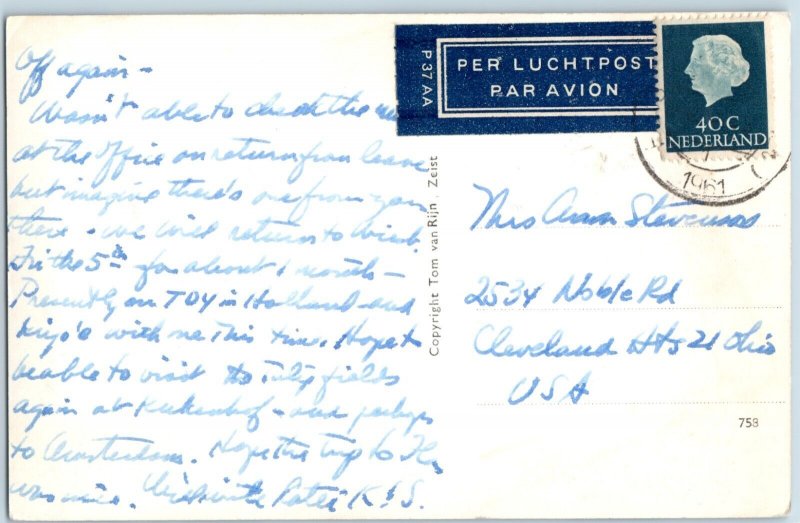 Off again -
Wasn't able to check the
at the office on return from leave
but imagine there's one from you
there. We will return to
Fri the 5th for about 1 month -
Presently on TDY in Holland and
with me this time. Hope to
be able to visit the Tulip fields
again at Keukenhof - and perhaps
to Amsterdam. Hope the trip to
was nice. K & S.
P 37 AA
PER LUCHTPOST
PAR AVION
40 C
NEDERLAND
1961
Copyright Tom van Rijn, Zeist
Mrs Anson Stevenson
2534 Noble Rd
Cleveland Hts 21 Ohio
USA
758